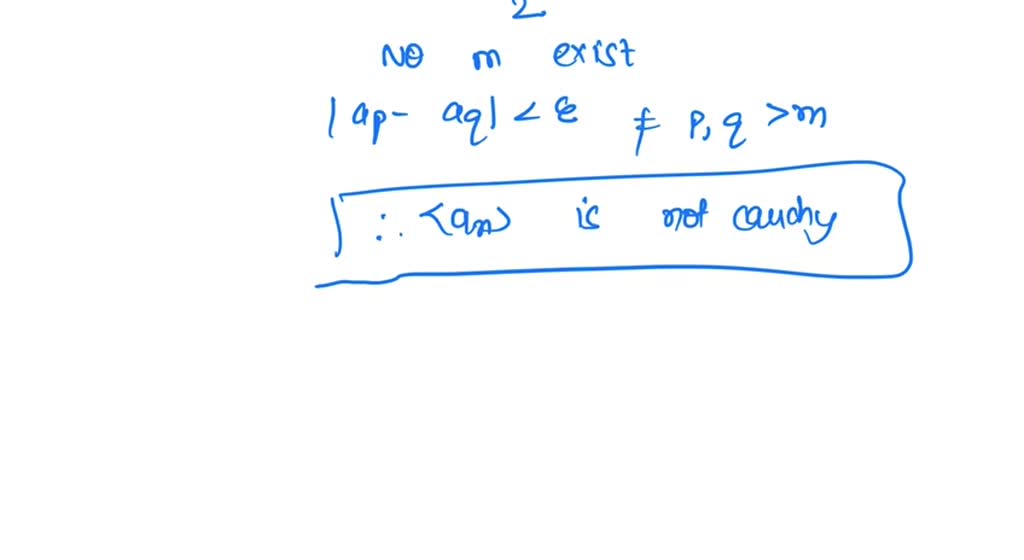 2
No m exist
|ap - aq| < ε ∀ p, q > m
∴ <an> is not cauchy